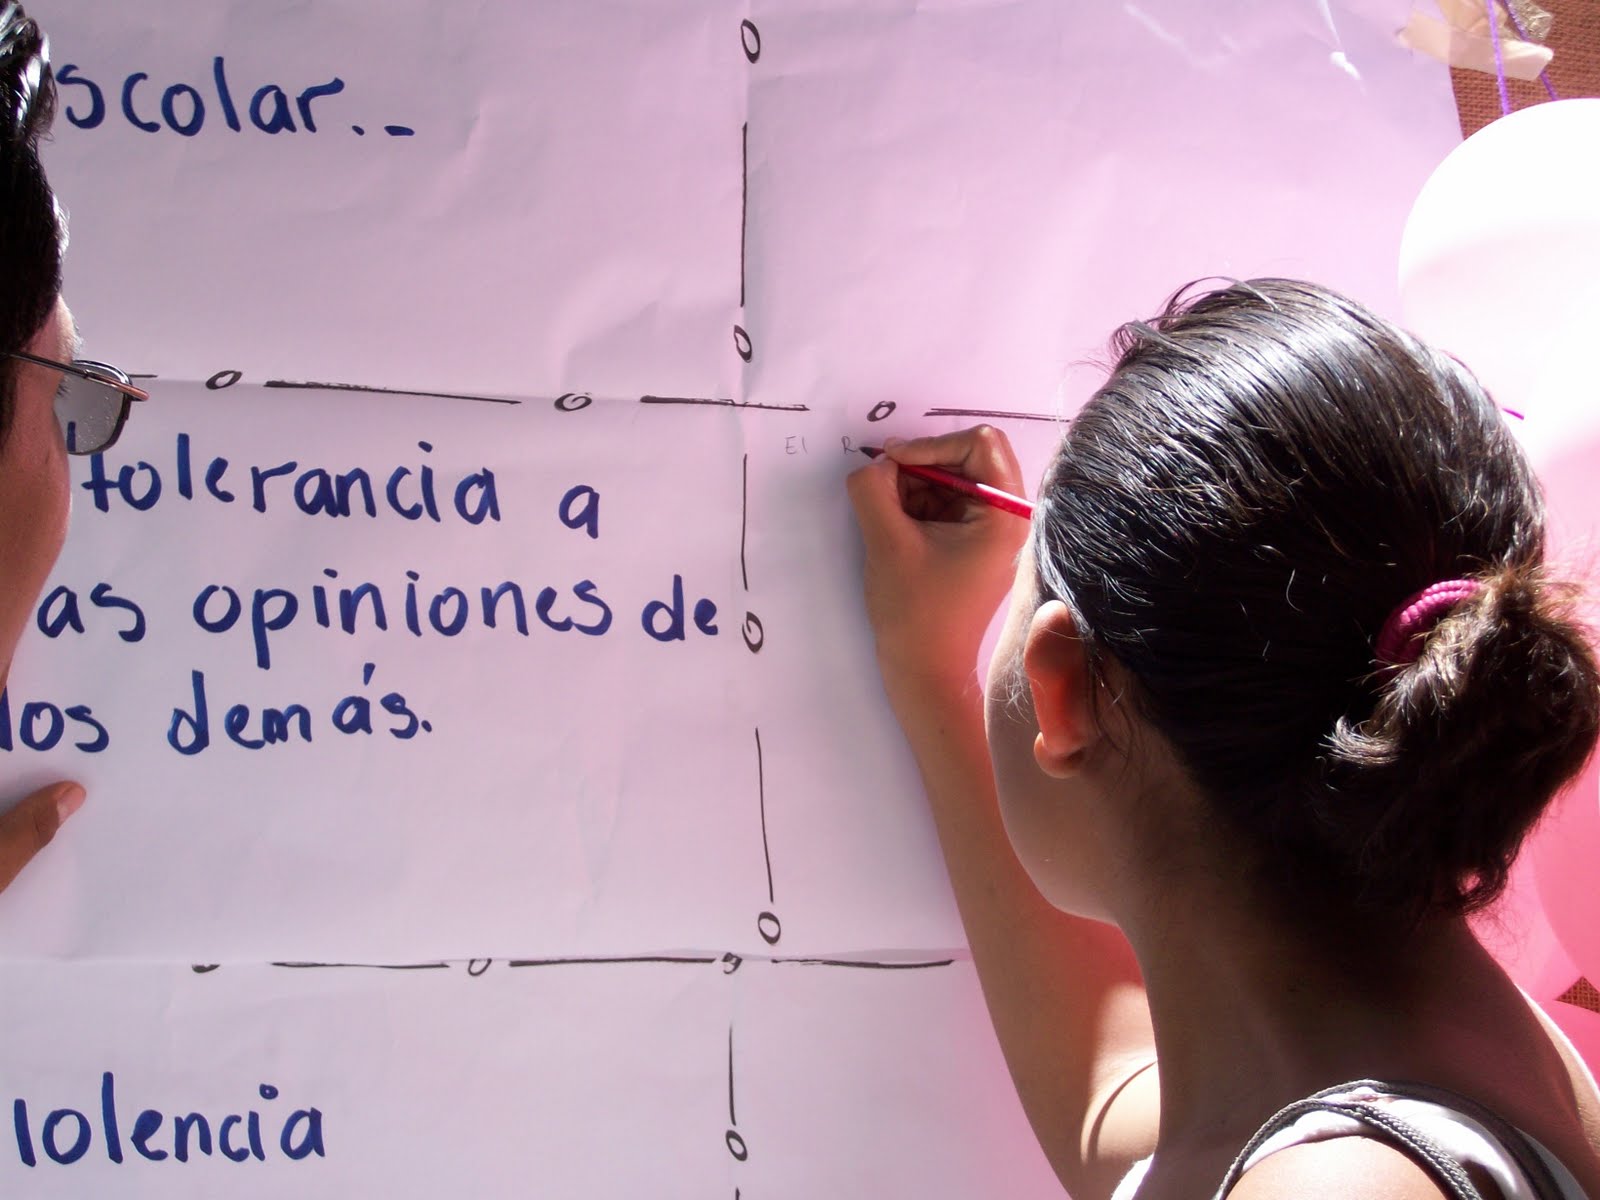 scolar...
tolerancia a
as opiniones de
los demás.
El R
iolencia